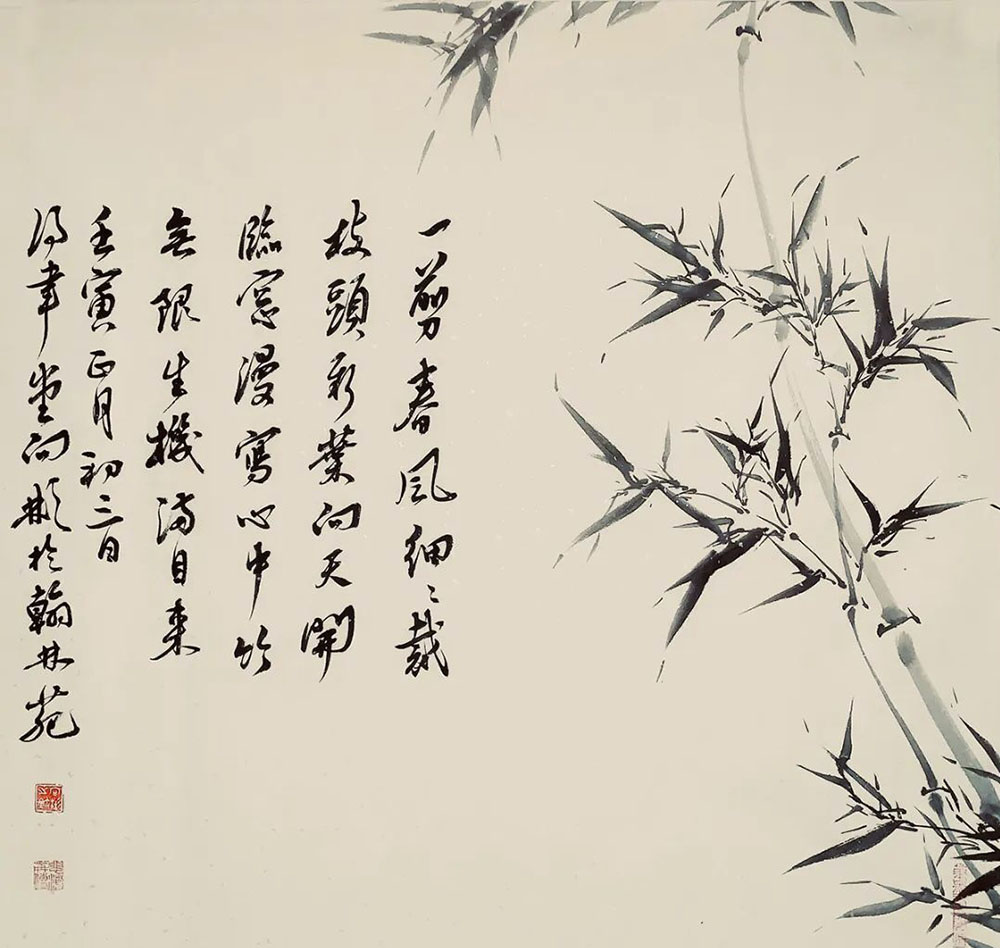 一剪春風細〻裁
枝頭新葉向天開
臨窓漫寫心中竹
無限生機滿目來
壬寅正月初三日
得聿堂向彬於翰林苑